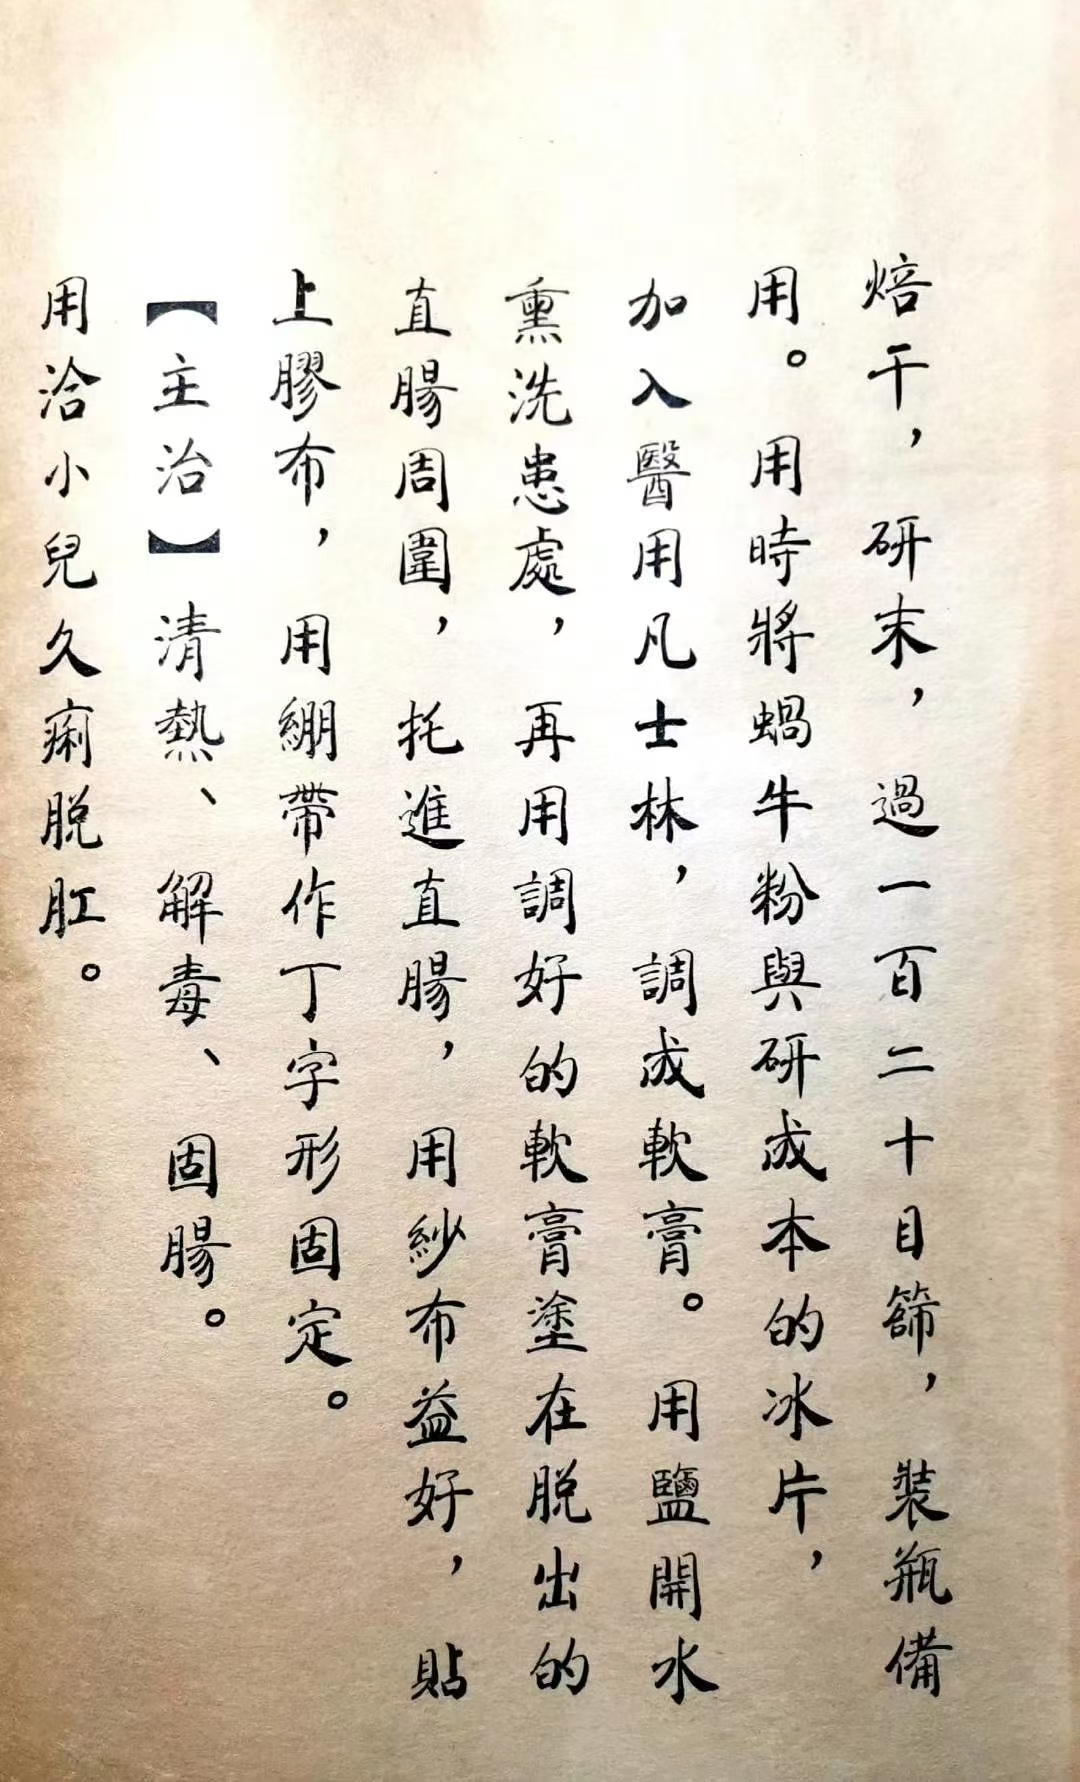 焙干，研末，過一百二十目篩，裝瓶備
用。用時將蝸牛粉與研成本的冰片，
加入醫用凡士林，調成軟膏。用鹽開水
熏洗患處，再用調好的軟膏塗在脱出的
直腸周圍，托進直腸，用紗布益好，貼
上膠布，用繃帶作丁字形固定。
【主治】清熱、解毒、固腸。
用洽小兒久痢脱肛。